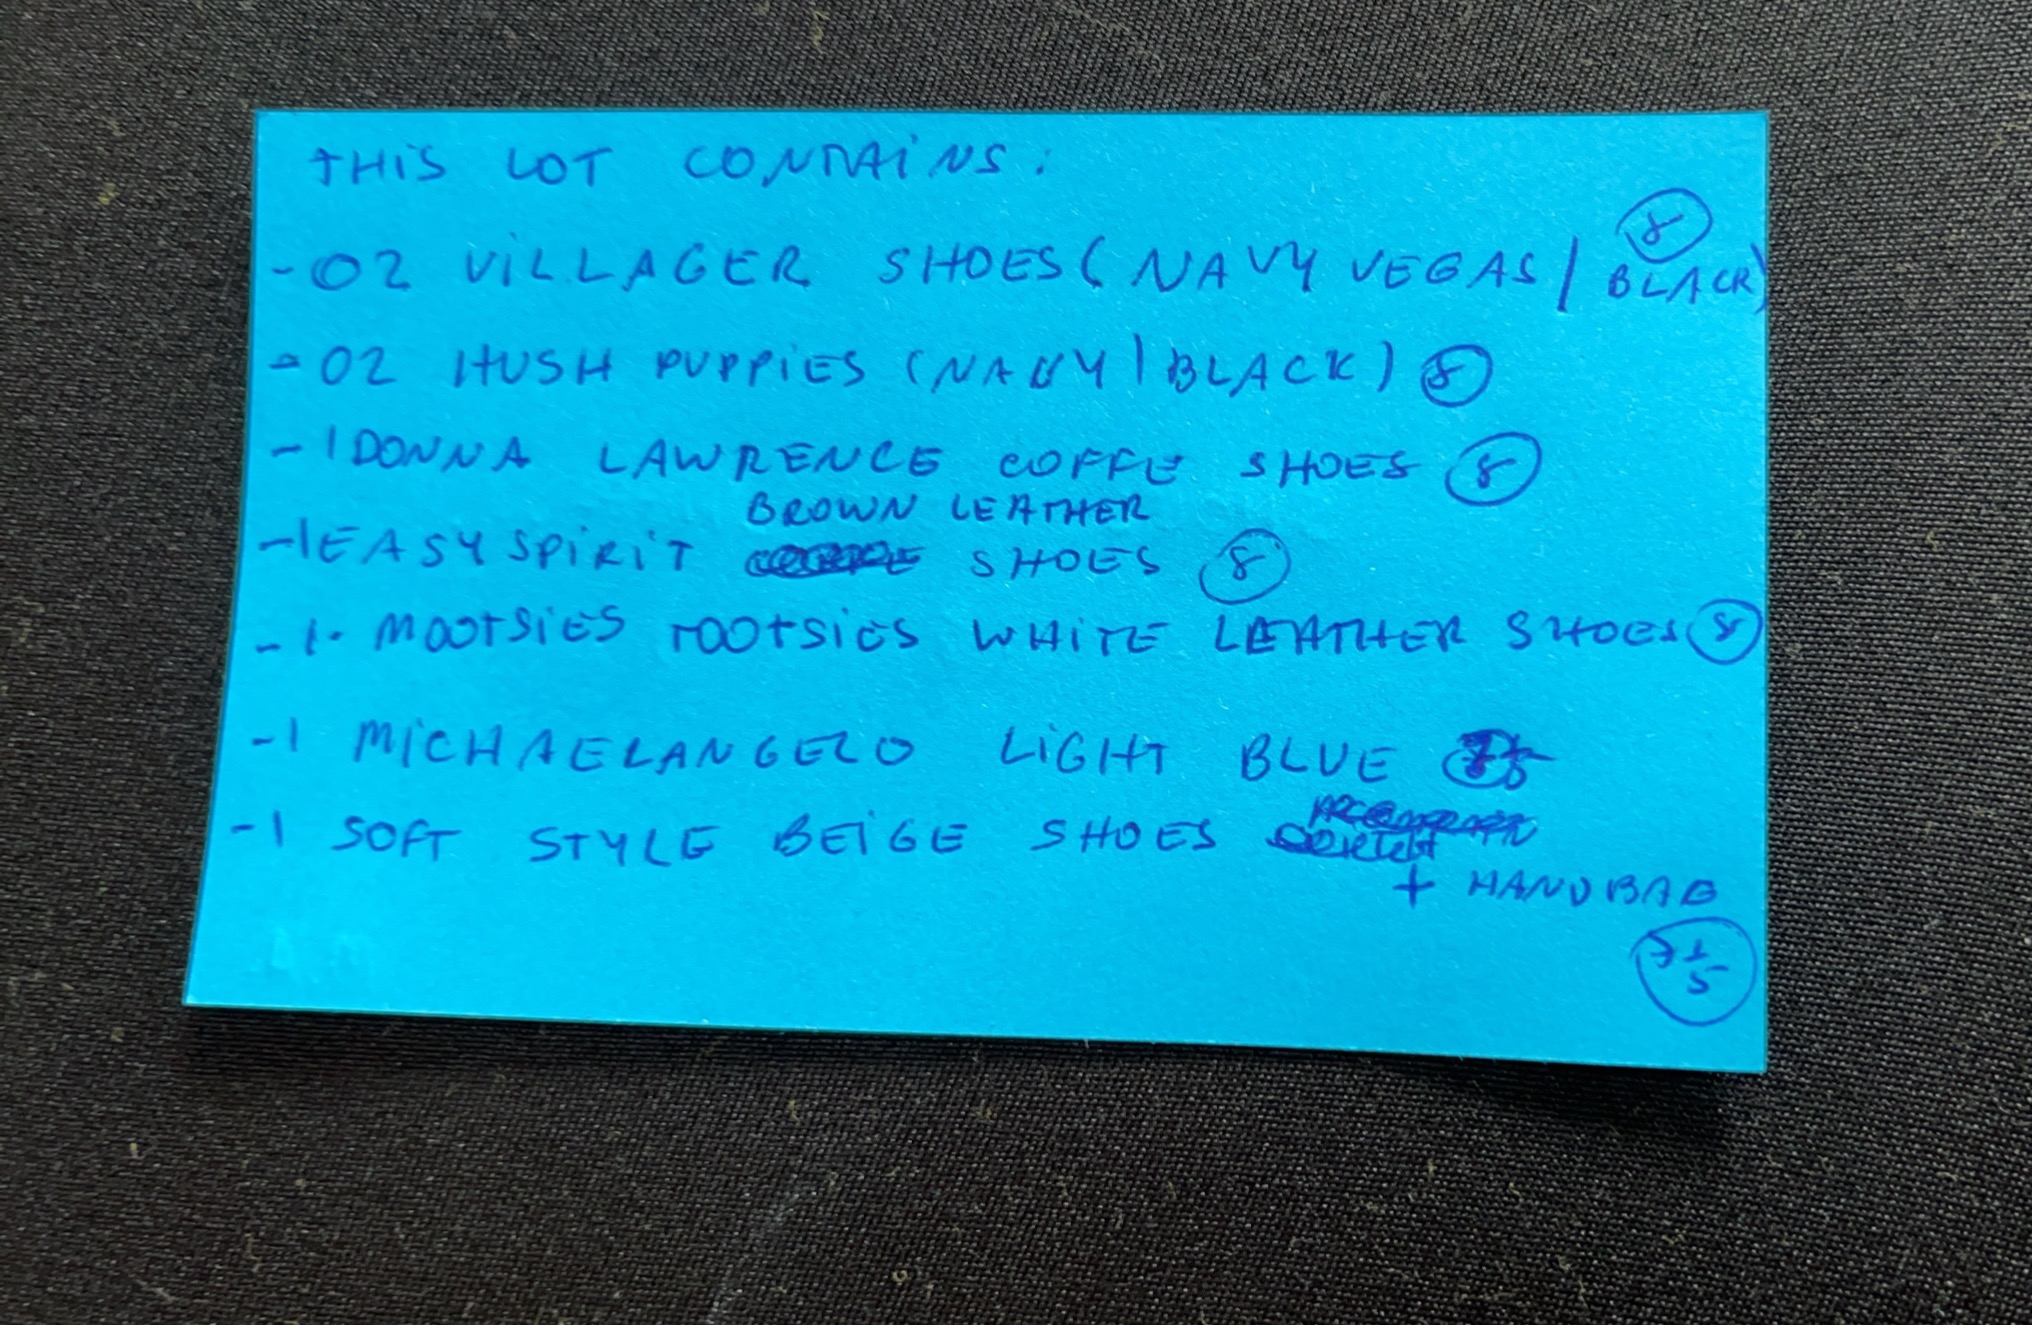 THIS LOT CONTAINS:
-02 VILLAGER SHOES (NAVY VEGAS / BLACK) 8
-02 HUSH PUPPIES (NAVY | BLACK) 8
-1 DONNA LAWRENCE COFFE SHOES 8
BROWN LEATHER
-1 EASY SPIRIT SHOES 8
-1. MOOTSIES TOOTSIES WHITE LEATHER SHOES 8
-1 MICHAELANGELO LIGHT BLUE
-1 SOFT STYLE BEIGE SHOES
+ HANDBAG